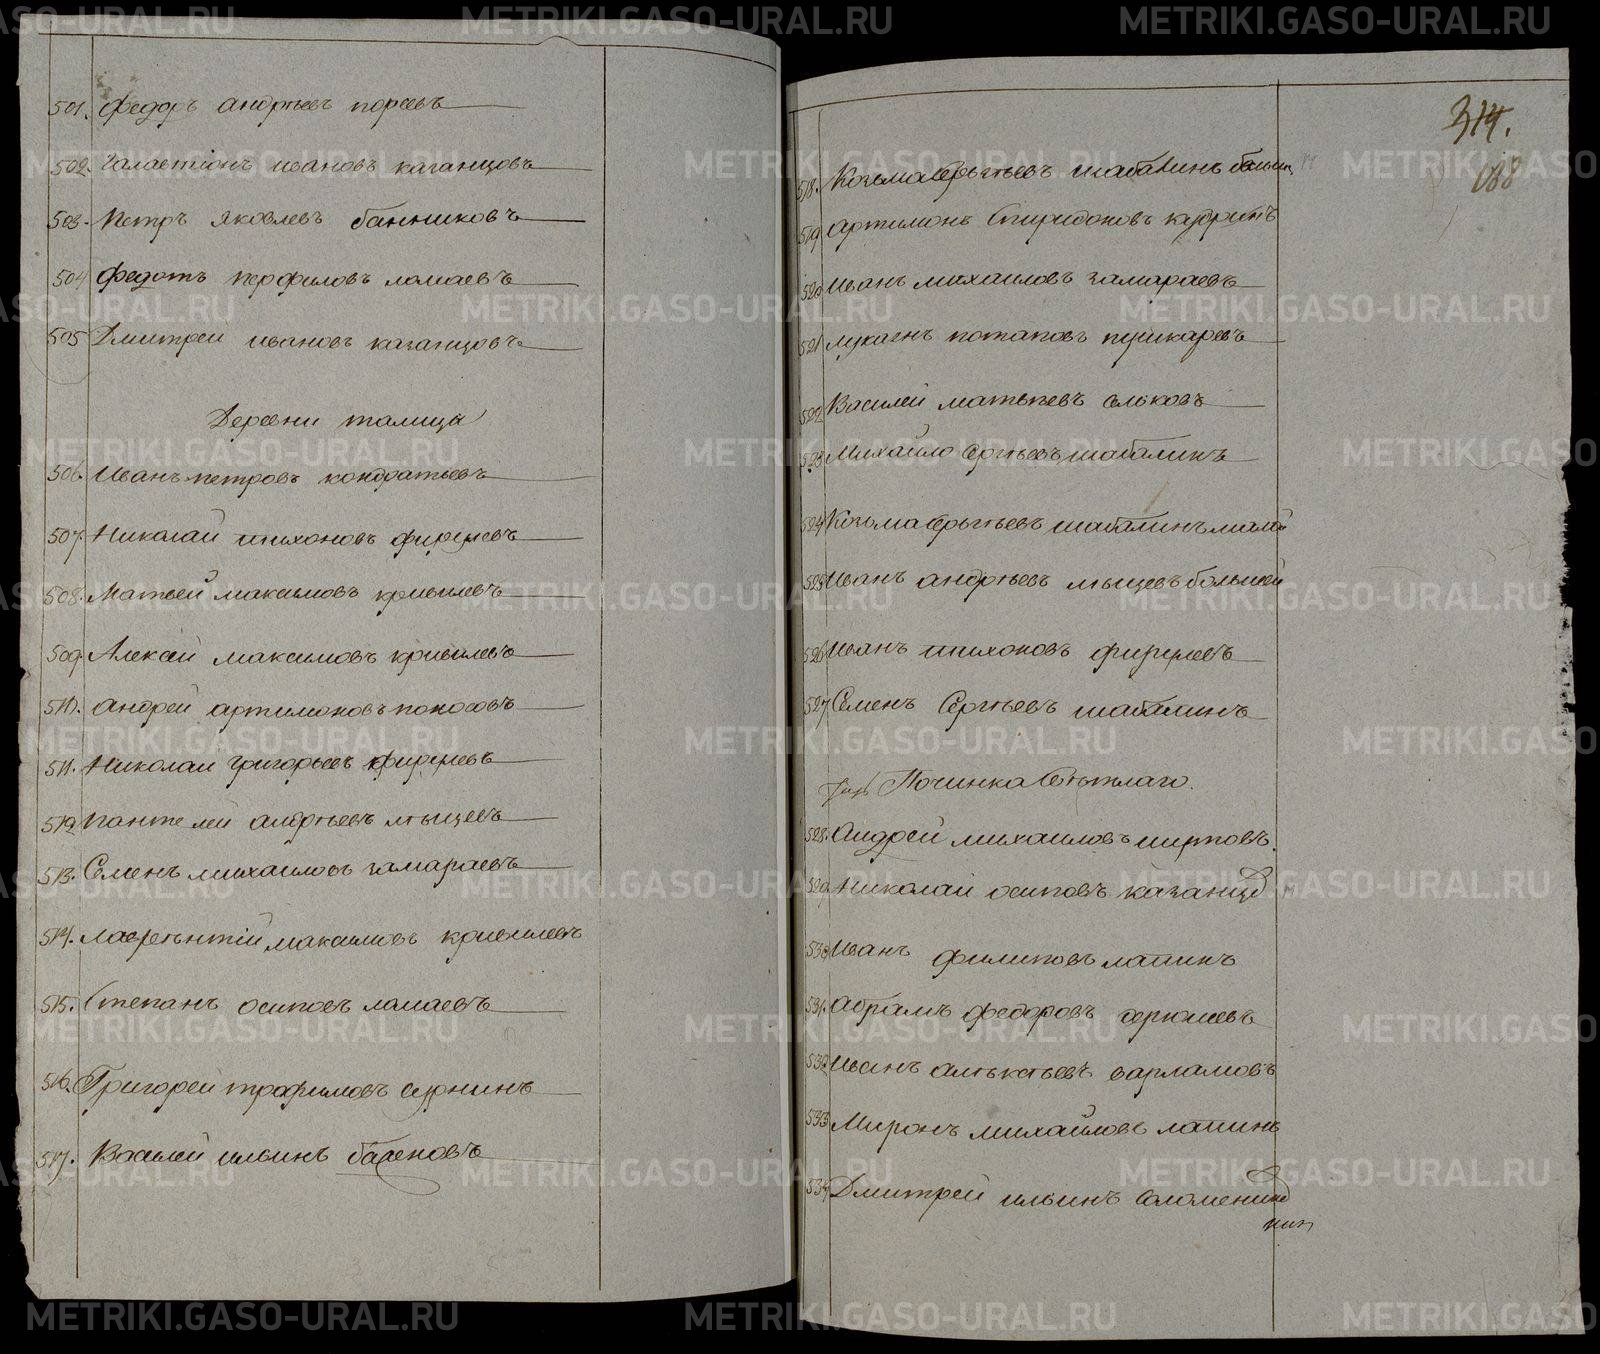 501. Федоръ андреевъ поревъ
502. Галактіонъ ивановъ казанцовъ
503. Петръ Яковлевъ банниковъ
504 Федотъ перфиловъ ломаевъ
505 Дмитрей ивановъ казанцовъ
Деревни талица
506. Иванъ петровъ кондратьевъ
507. Николай тихоновъ фирулевъ
508. Матвей максимовъ кривилевъ
509. Алексей максимовъ кривилевъ
510. андрей артимоновъ поносовъ
511. Николай григорьевъ фирулевъ
512 пантелей андреевъ мтыщевъ
513. Семенъ михаиловъ замараевъ
514. лаврентій максимовъ кривилевъ
515. Степанъ осиповъ ломаевъ
516. Григорей трофимовъ суднинъ
517. Василей ильинъ
314.
188
518. Козьма Сергѣевъ шабалинъ больш.
519 артимонъ Спиридоновъ кудринъ
520 иванъ михаиловъ замараевъ
521 потаповъ пушкаревъ
522 Василей матвѣевъ ольковъ
523 Михайло Сергѣевъ шабалинъ
524 Козьма Сергѣевъ шабалинъ малой
525 Иванъ андреевъ мтыщевъ большей
526 иванъ тихоновъ фирулевъ
527 Семенъ Сергѣевъ шабалинъ
Починка Свѣтлаго.
528. Андрей михаиловъ
529. Николай осиповъ казанцо
530 иванъ филиповъ лапинъ
531. абрамъ федоровъ
532 Иванъ алѣксѣевъ варламовъ
533 Миронъ михайловъ лапинъ
534 Дмитрей ильинъ соломен
нин
METRIKI.GASO-URAL.RU